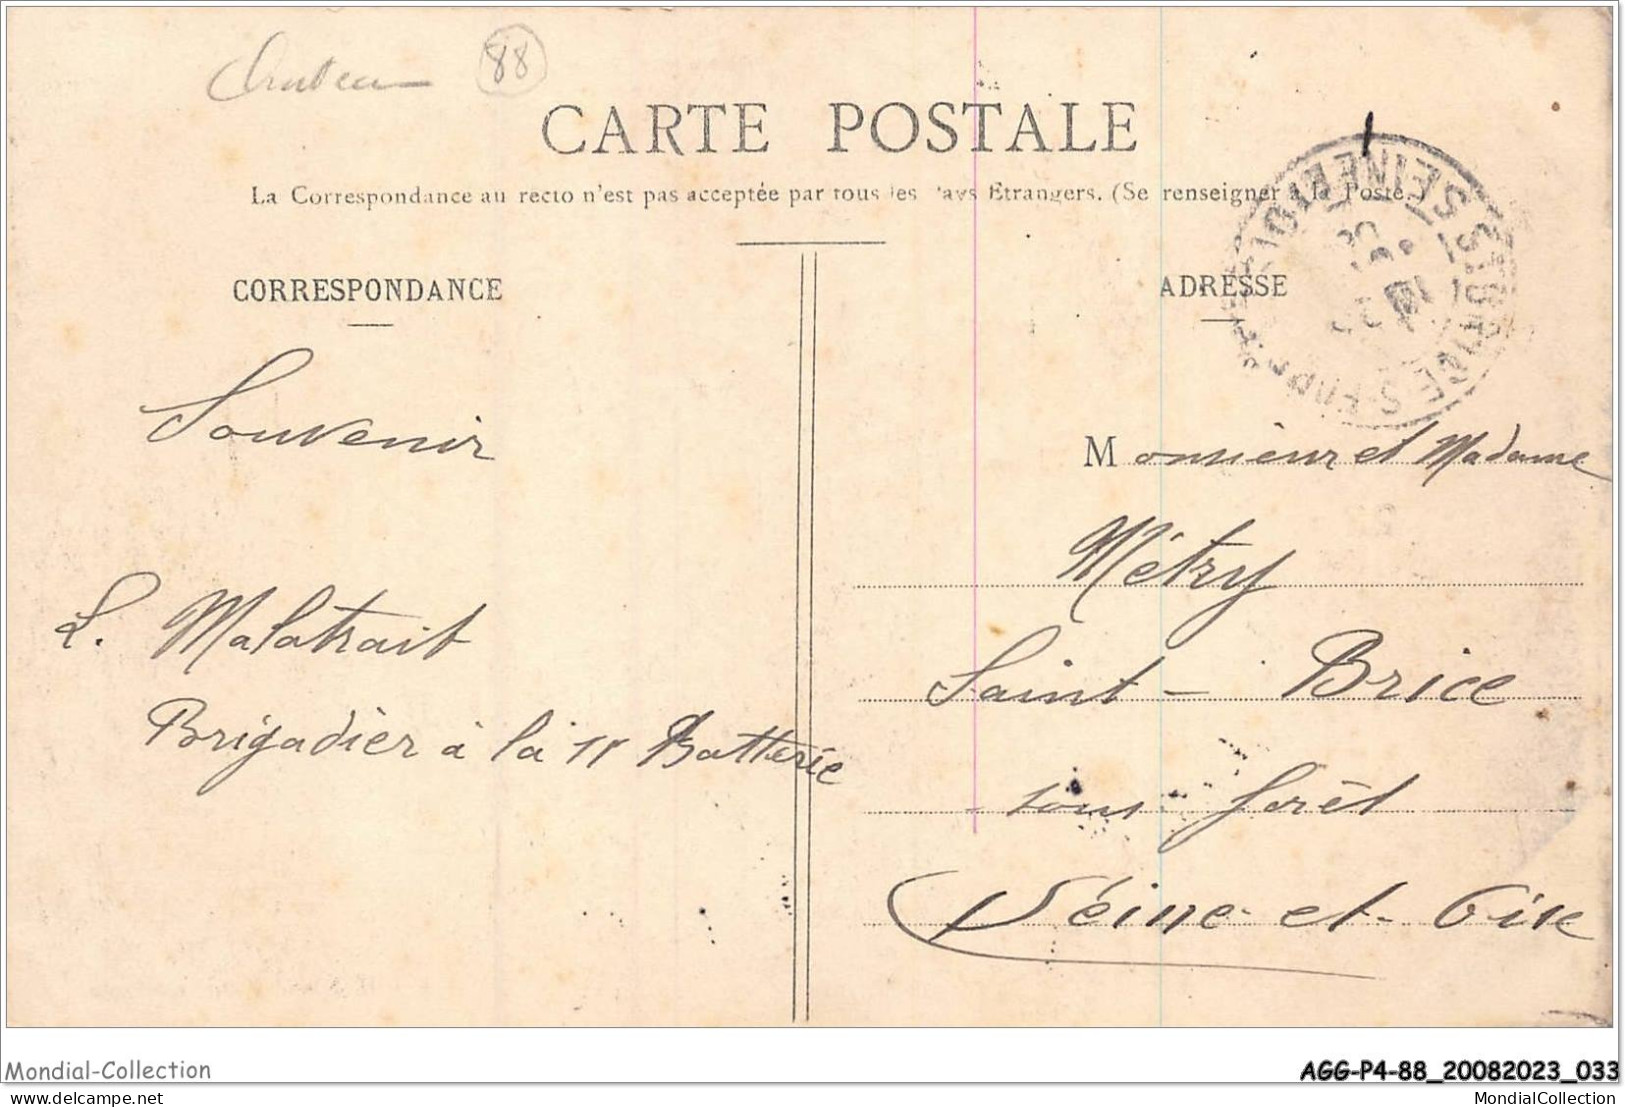 88
CARTE POSTALE
La Correspondance au recto n'est pas acceptée par tous les Pays Etrangers. (Se renseigner à la Poste.)
CORRESPONDANCE
ADRESSE
Souvenir
L. Malatrait
Brigadier à la 11 Batterie
Monsieur et Madame
Métry
Saint - Brice
sous forêt
Seine-et-Oise
ST BRICE-S-FORET
SEINE ET OISE
Mondial-Collection
AGG-P4-88_20082023_033
delcampe.net
MondialCollection